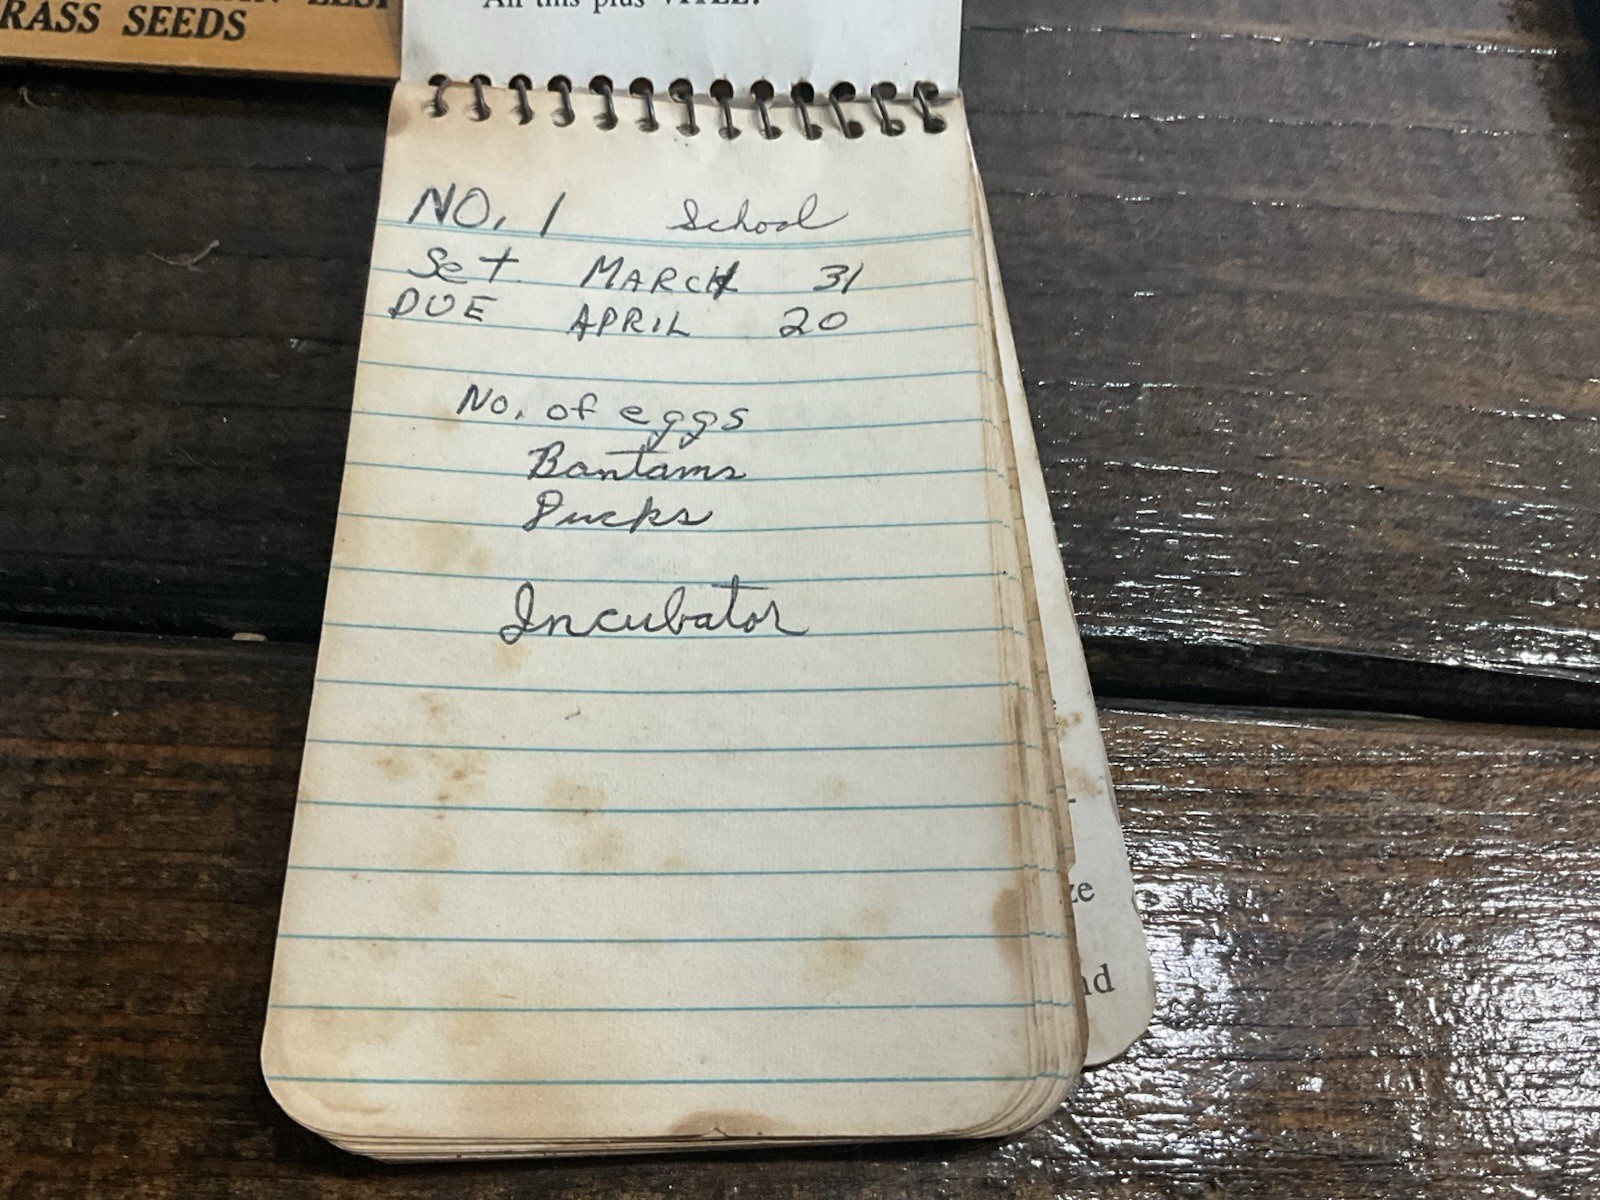 RASS SEEDS
All this plus
NO. 1 School
Set MARCH 31
DUE APRIL 20
No. of eggs
Bantams
Ducks
Incubator
ze
nd